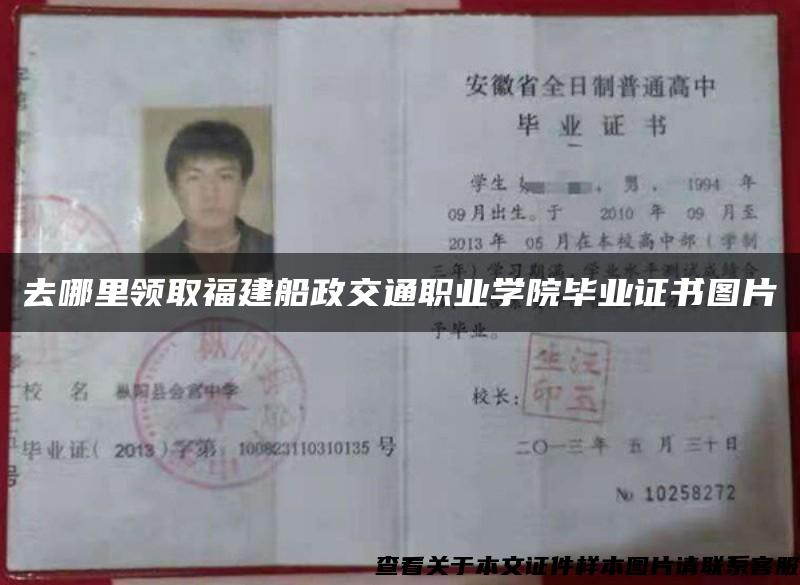 安徽省全日制普通高中
毕业证书
学生 男，1994 年
09月出生。于 2010 年 09 月至
2013年 05 月在本校高中部（学制
三年）学习期满，学业水平测试成绩合
去哪里领取福建船政交通职业学院毕业证书图片
予毕业。
校 名 枞阳县会宫中学
校长：
毕业证( 2013 )字第：100823110310135 号
二〇一三年 五 月 三十日
№ 10258272
查看关于本文证件样本图片请联系客服